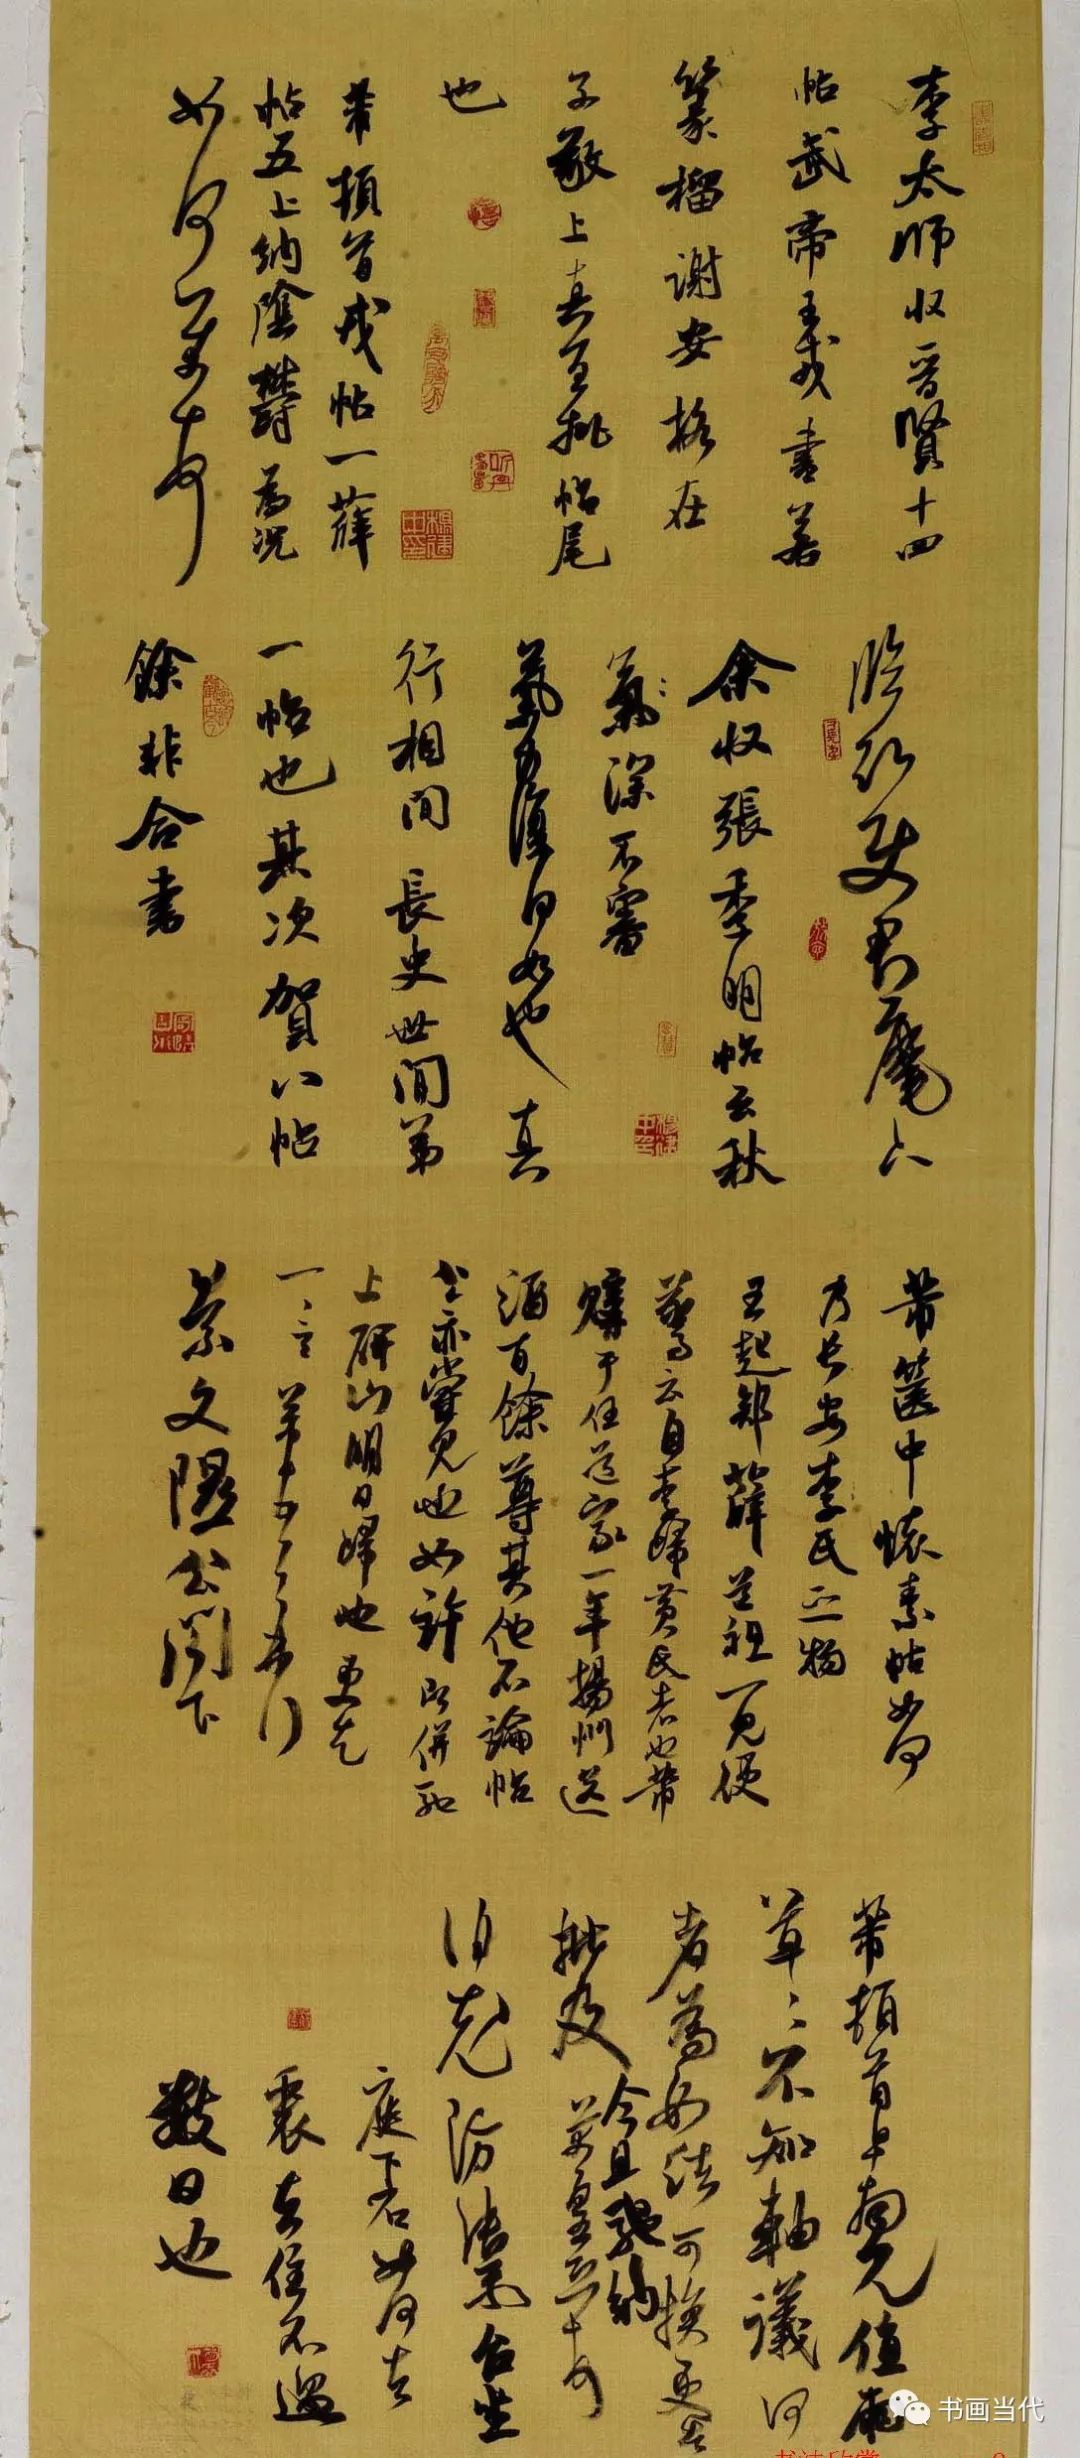 李太师收晋賢十四
帖武帝王戎書若
篆榴谢安格在
子敬上真宜批帖尾
也
芾頓首戎帖一薛
帖五上納陰鬱為況
如何芾頓首
余收張季明帖云秋
氣深不審
氣力復何如也真
行相間長史世間第
一帖也其次賀八帖
餘非合書
芾箧中懷素帖如何
乃長安李氏之物
王起部薛道祖一見便
驚云自李歸黃氏者也芾
購于任道家一年揚州送
酒百餘尊其他不論帖
公亦嘗見也如許即併馳
上研山明日歸也更乞
一言芾頓首
景文隰公閣下
芾頓首
草〻不知軸議何
者為如結可换更告
批及今且馳納
芾頓首
伯充防禦台坐
庭下石如何去
裹去住不過
数日也
书画当代